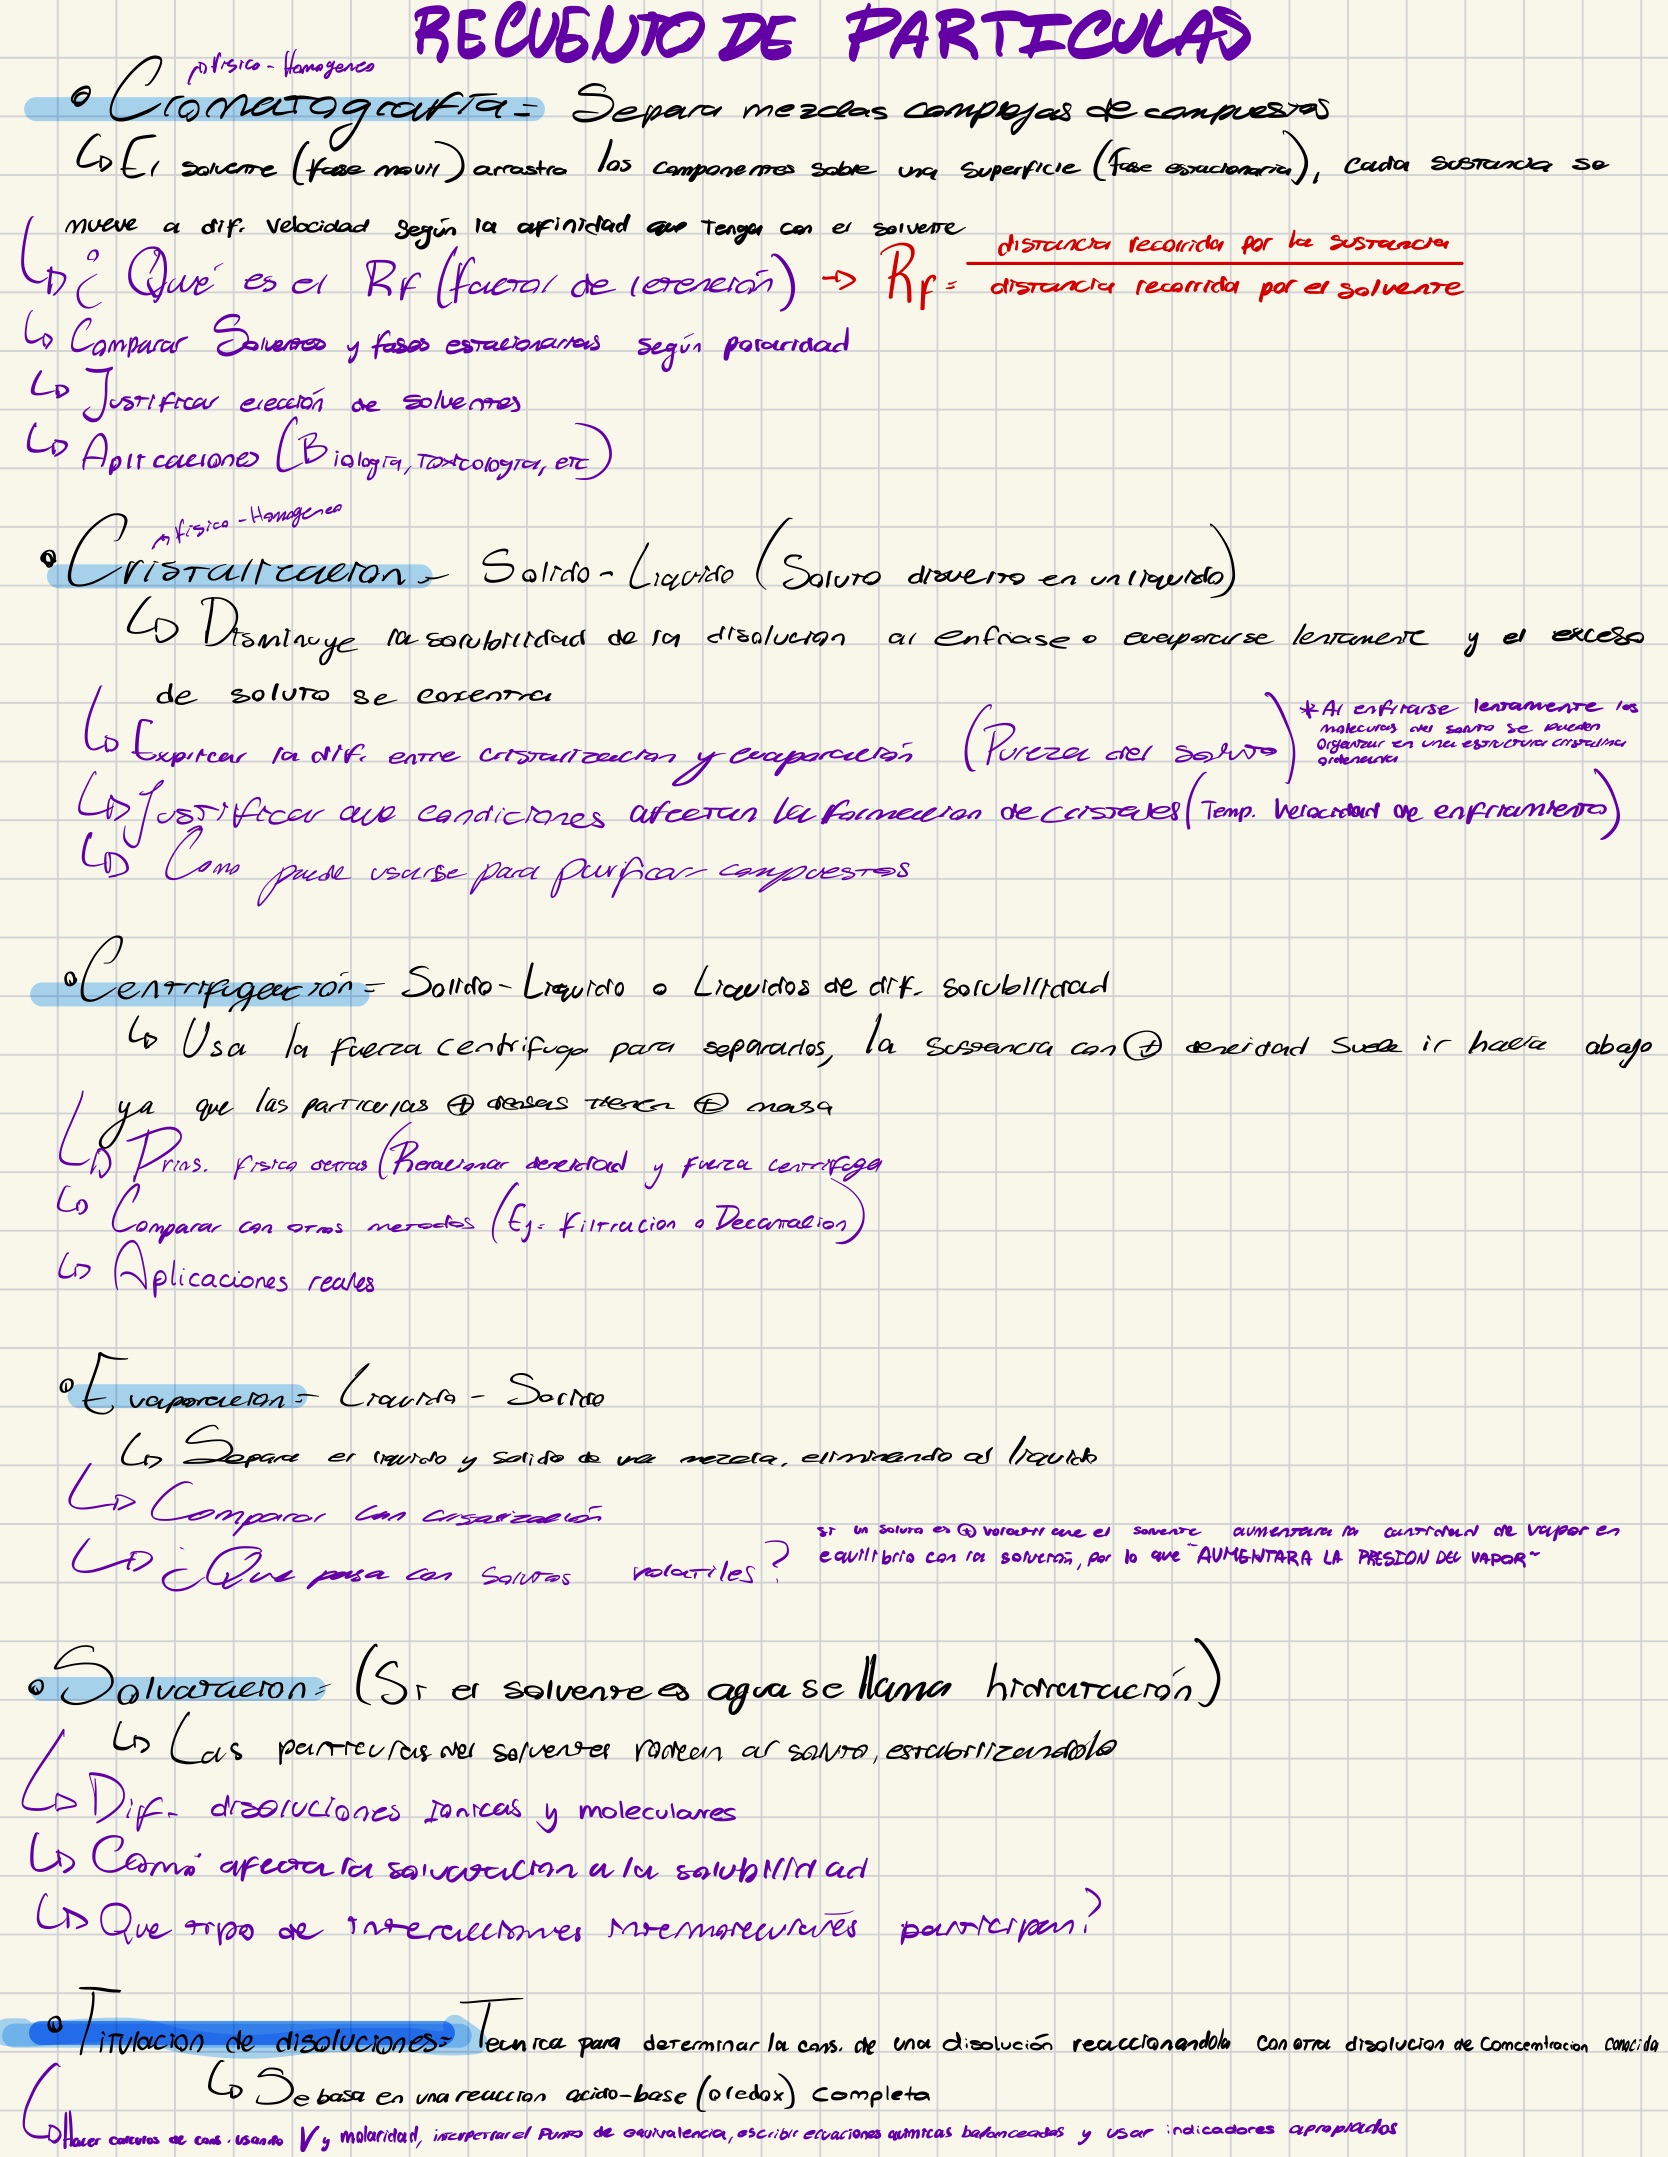 RECUENTO DE PARTICULAS
→ Fisico - Homogeneo
• Cromatografía = Separa mezclas complejas de compuestos
↳ El solvente (fase movil) arrastra los componentes sobre una superficie (fase estacionaria), cada sustancia se
mueve a dif. velocidad según la afinidad que tenga con el solvente
↳ ¿Qué es el Rf (factor de retención) → Rf = distancia recorrida por la sustancia
distancia recorrida por el solvente
↳ Comparar Solventes y fases estacionarias según polaridad
↳ Justificar elección de solventes
↳ Aplicaciones (Biología, Toxicología, etc)
→ fisico - Homogeneo
• Cristalizacion = Solido - Liquido (Soluto disuelto en un liquido)
↳ Disminuye la solubilidad de la disolucion al enfriase o evaporarse lentamente y el exceso
de soluto se concentra
↳ Explicar la dif. entre cristalizacion y evaporación (Pureza del soluto)
* Al enfriarse lentamente las
moleculas del soluto se pueden
organizar en una estructura cristalina
ordenada
↳ Justificar que condiciones afectan la formacion de cristales (Temp. Velocidad de enfriamiento)
↳ Como puede usarse para purificar compuestos
• Centrifugación = Solido - Liquido o Liquidos de dif. solubilidad
↳ Usa la fuerza centrifuga para separarlos, la sustancia con ⊕ densidad suele ir hacia abajo
ya que las particulas ⊕ densas tienen ⊕ masa
↳ Prins. fisico detras (Relacionar densidad y fuerza centrifuga
↳ Comparar con otros metodos (Ej= filtracion o Decantacion)
↳ Aplicaciones reales
• Evaporacion = Liquido - Solido
↳ Separa el liquido y solido de una mezcla, eliminando al liquido
↳ Comparar con crisalización
↳ ¿Que pasa con solutos volatiles?
si un soluto es ⊕ volatil que el solvente aumentara la cantidad de vapor en
equilibrio con la solución, por lo que "AUMENTARA LA PRESION DEL VAPOR"
• Solvatacion = (Si el solvente es agua se llama hidratación)
↳ Las particulas del solvente rodean al soluto, estabilizandolo
↳ Dif. disoluciones Ionicas y moleculares
↳ Como afecta la solvatacion a la solubilidad
↳ Que tipo de interacciones intermoleculares participan?
• Titulacion de disoluciones = Tecnica para determinar la cons. de una disolución reaccionandola con otra disolucion de Comcentracion conocida
↳ Se basa en una reaccion acido-base (o redox) completa
↳ Hacer calculos de cons. usando V y molaridad, interpretar el Punto de equivalencia, escribir ecuaciones quimicas balanceadas y usar indicadores apropiados